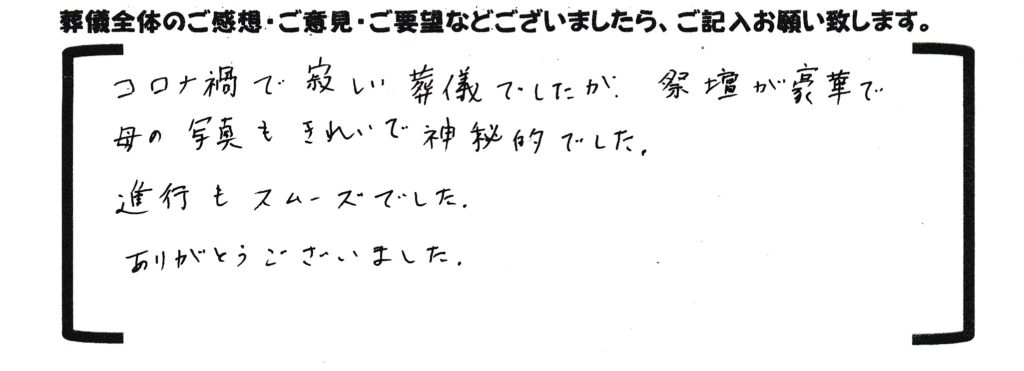 葬儀全体のご感想・ご意見・ご要望などございましたら、ご記入お願い致します。
コロナ禍で寂しい葬儀でしたが、祭壇が豪華で
母の写真もきれいで神秘的でした。
進行もスムーズでした。
ありがとうございました。